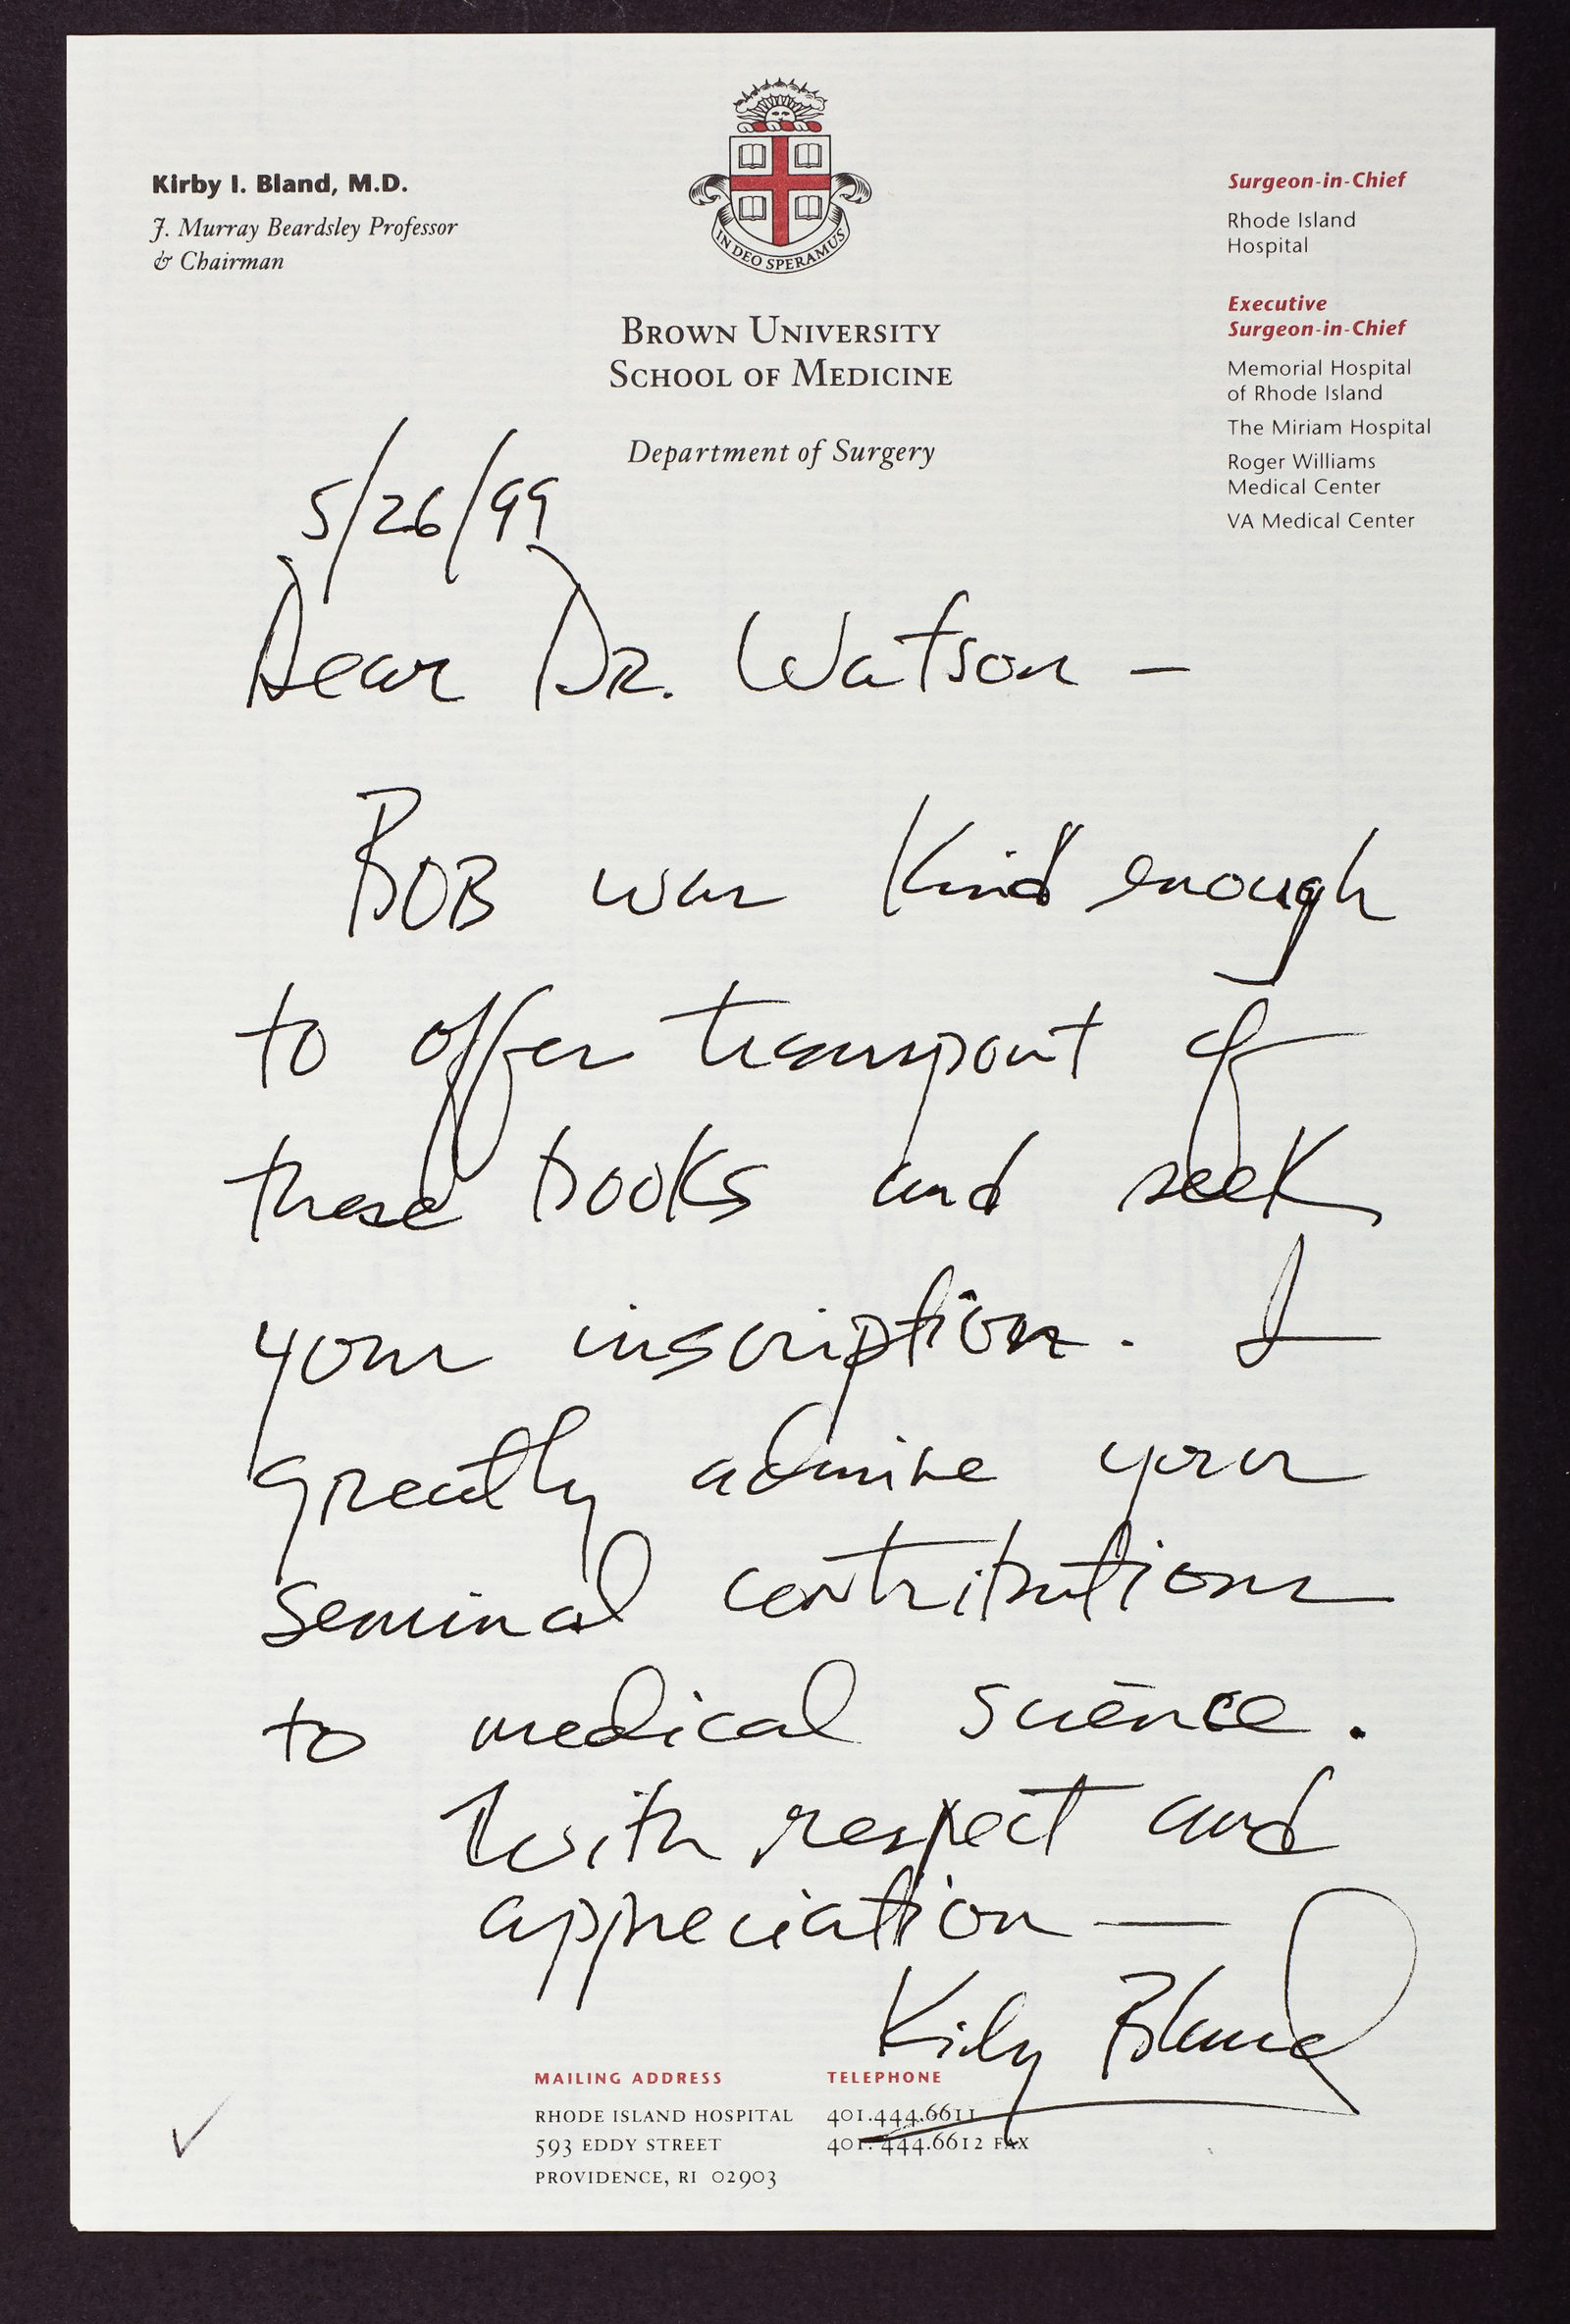 Kirby I. Bland, M.D.
J. Murray Beardsley Professor
& Chairman
IN DEO SPERAMUS
BROWN UNIVERSITY
SCHOOL OF MEDICINE
Department of Surgery
Surgeon-in-Chief
Rhode Island
Hospital
Executive
Surgeon-in-Chief
Memorial Hospital
of Rhode Island
The Miriam Hospital
Roger Williams
Medical Center
VA Medical Center
5/26/99
Dear DR. Watson —
BOB was Kind enough
to offer transport of
these books and seek
your inscription. I
greatly admire your
seminal contributions
to medical science.
With respect and
appreciation —
Kirby Bland
MAILING ADDRESS
RHODE ISLAND HOSPITAL
593 EDDY STREET
PROVIDENCE, RI 02903
TELEPHONE
401.444.6611
401.444.6612 FAX